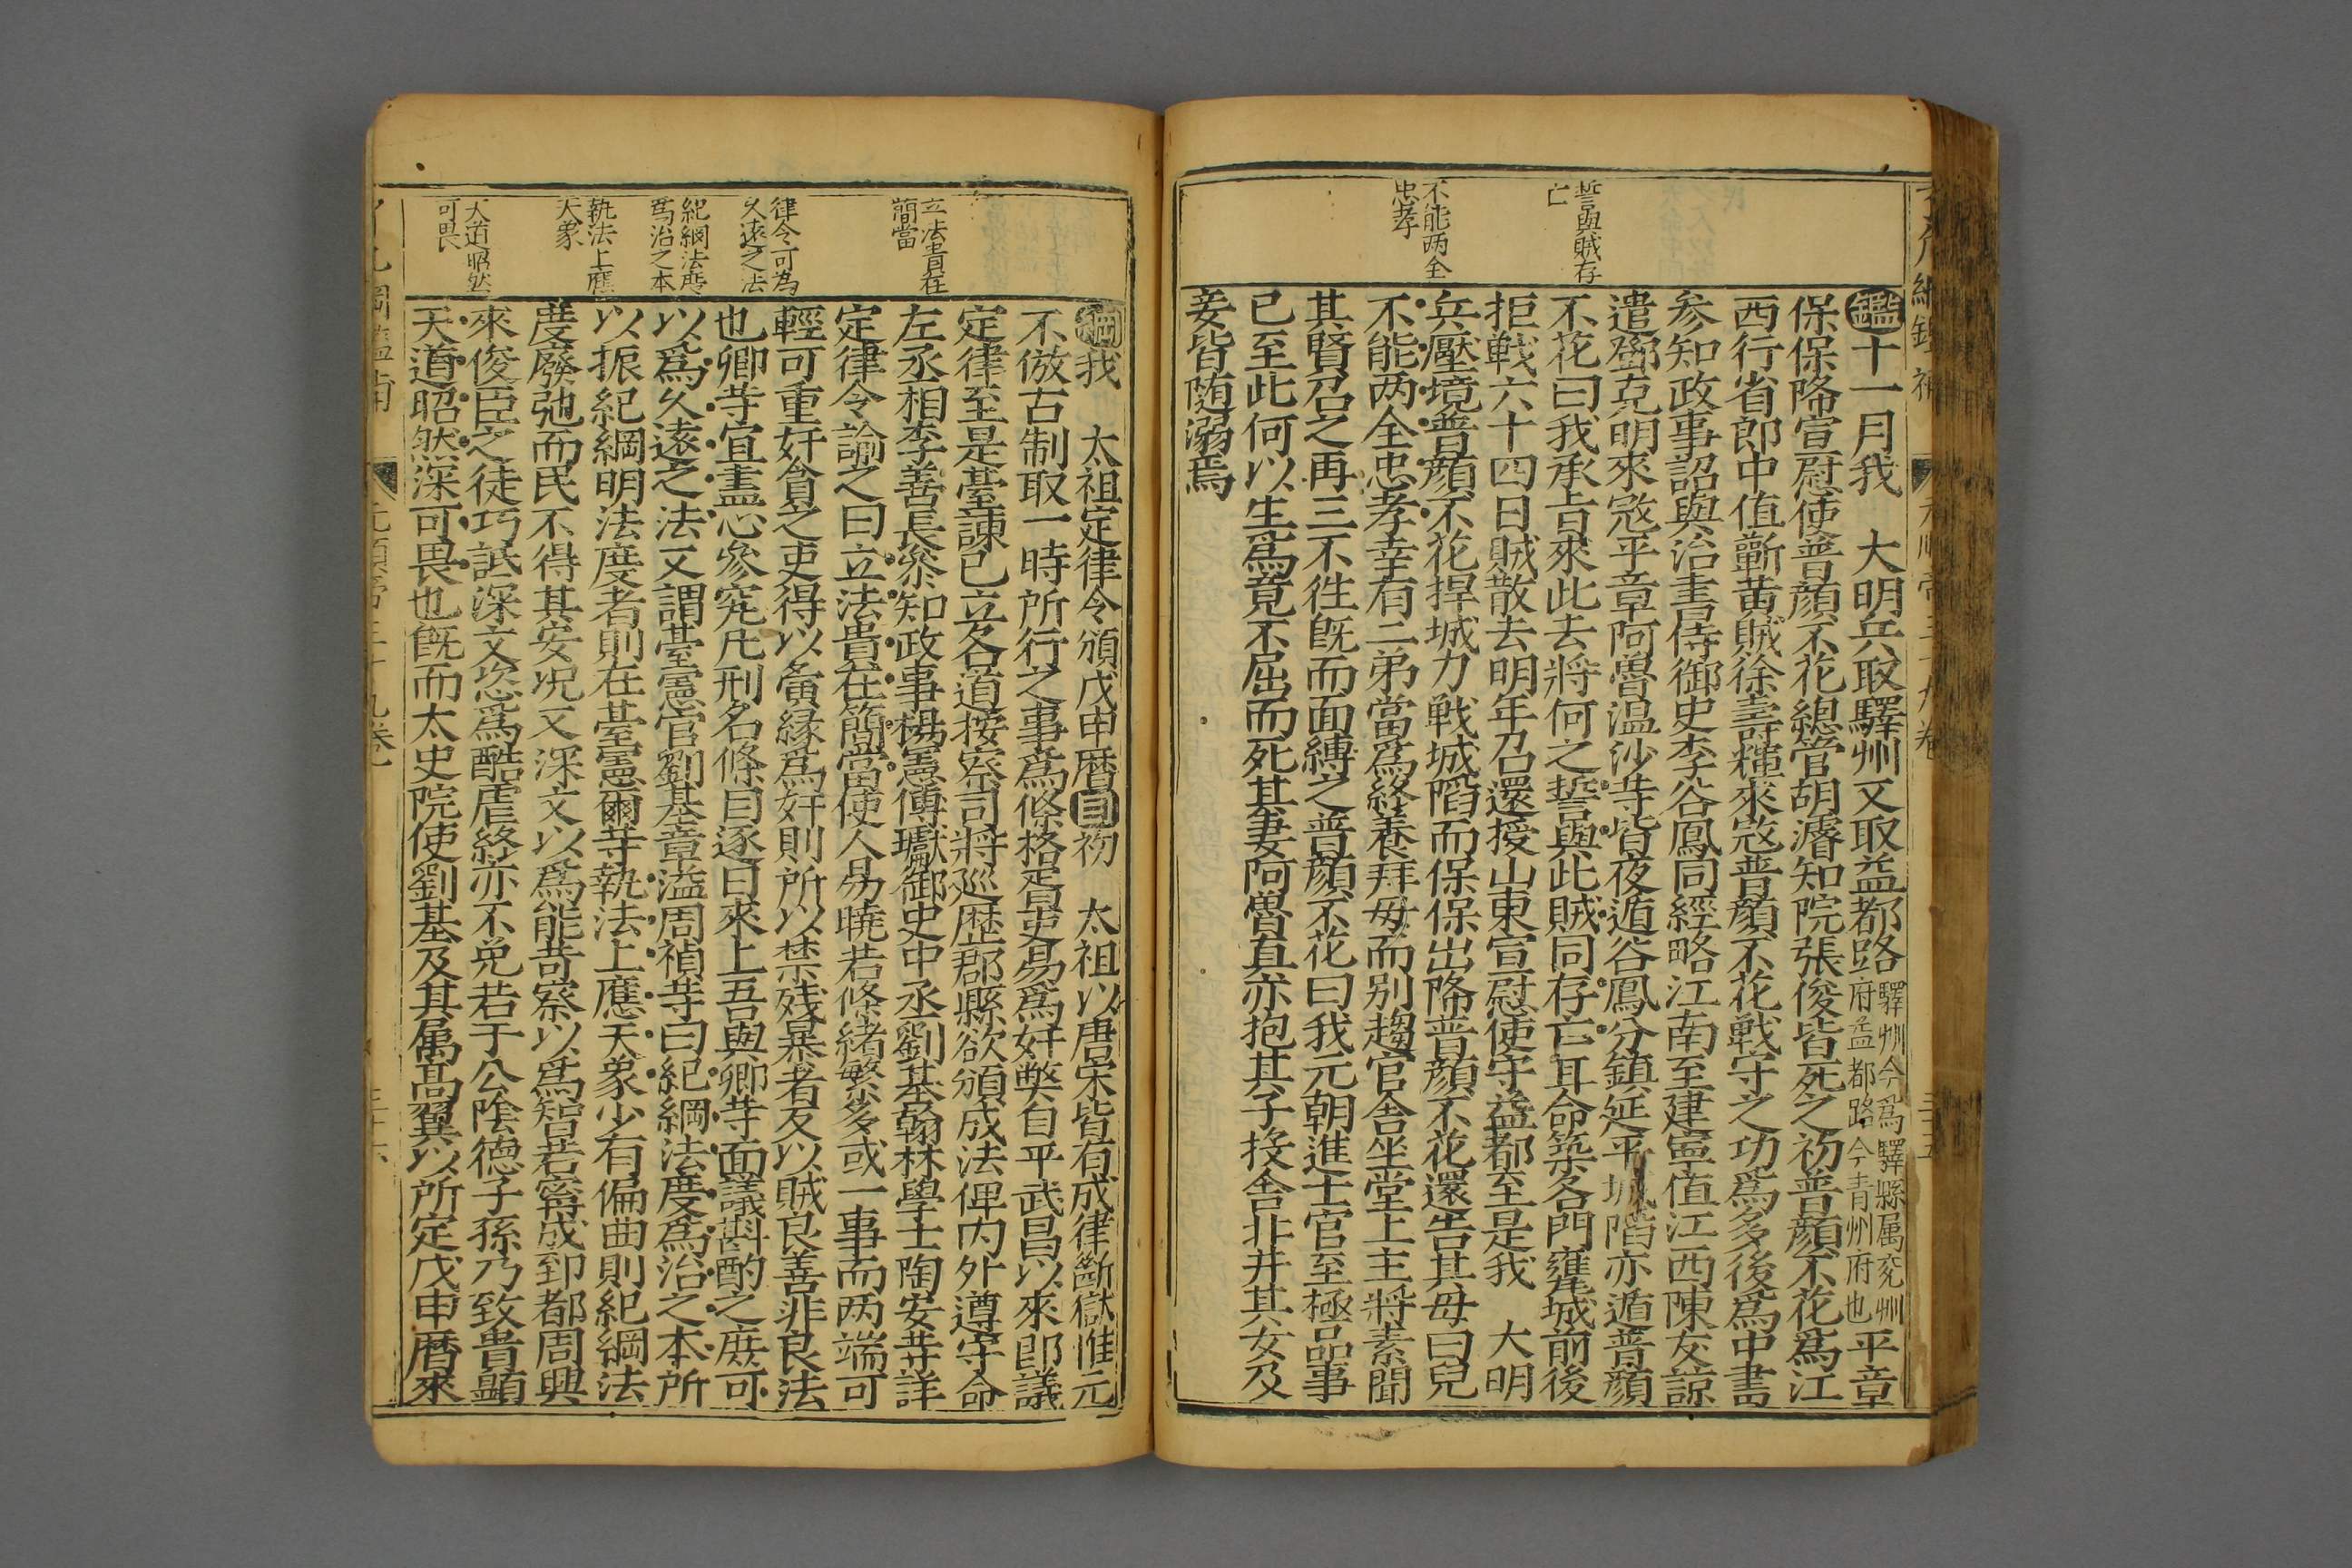 誓與賊存
亡
不能两全
忠孝
鑑十一月我 大明兵取驛州又取益都路驛州今爲驛縣属兖州府益都路今青州府也平章
保保降宣慰使普顔不花總管胡濬知院張俊皆死之初普顔不花爲江
西行省郎中值蘄黄賊徐壽輝來冦普顔不花戰守之功爲多後爲中書
参知政事詔與治書侍御史李谷鳳同經略江南至建寧值江西陳友諒
遣鄧克明來冦平章阿魯温沙䓁皆夜遁谷鳳分鎮延平城陷亦遁普顔
不花曰我承旨來此去將何之誓與此賊同存亡耳命築各門甕城前後
拒戰六十四日賊散去明年召還授山東宣慰使守益都至是我 大明
兵壓境普顔不花捍城力戰城陷而保保出降普顔不花還告其母曰兒
不能两全忠孝幸有二弟當爲終養拜母而别趨官舎坐堂上主將素聞
其賢召之再三不徃旣而面縛之普顔不花曰我元朝進士官至極品事
已至此何以生爲竟不屈而死其妻阿魯真亦抱其子投舎北井其女及
妾皆随溺焉
立法貴在
簡當
律令可為
久遠之法
紀綱法度
爲治之本
執法上應
天象
天道昭然
可畏
綱我 太祖定律令頒戊申曆目初 太祖以唐宋皆有成律斷獄惟元
不倣古制取一時所行之事爲條格胥吏易爲奸弊自平武昌以來即議
定律至是臺諫已立各道按察司將巡歴郡縣欲頒成法俾内外遵守命
左丞相李善長叅知政事楊憲傅瓛御史中丞劉基翰林學士陶安䓁詳
定律令諭之曰立法貴在簡當使人易曉若條緒繁多或一事而两端可
輕可重奸貪之吏得以夤緣爲奸則所以禁殘暴者反以賊良善非良法
也卿䓁宜盡心參究凡刑名條目逐日來上吾與卿䓁面議斟酌之庶可
以爲久遠之法又謂臺憲官劉基章溢周禎䓁曰紀綱法度爲治之本所
以振紀綱明法度者則在臺憲爾䓁執法上應天象少有偏曲則紀綱法
度廢弛而民不得其安况又深文以爲能苛察以爲智若甯成郅都周興
來俊臣之徒巧詆深文恣爲酷虐終亦不免若于公隂德子孫乃致貴顯
天道昭然深可畏也旣而太史院使劉基及其属高翼以所定戊申曆來